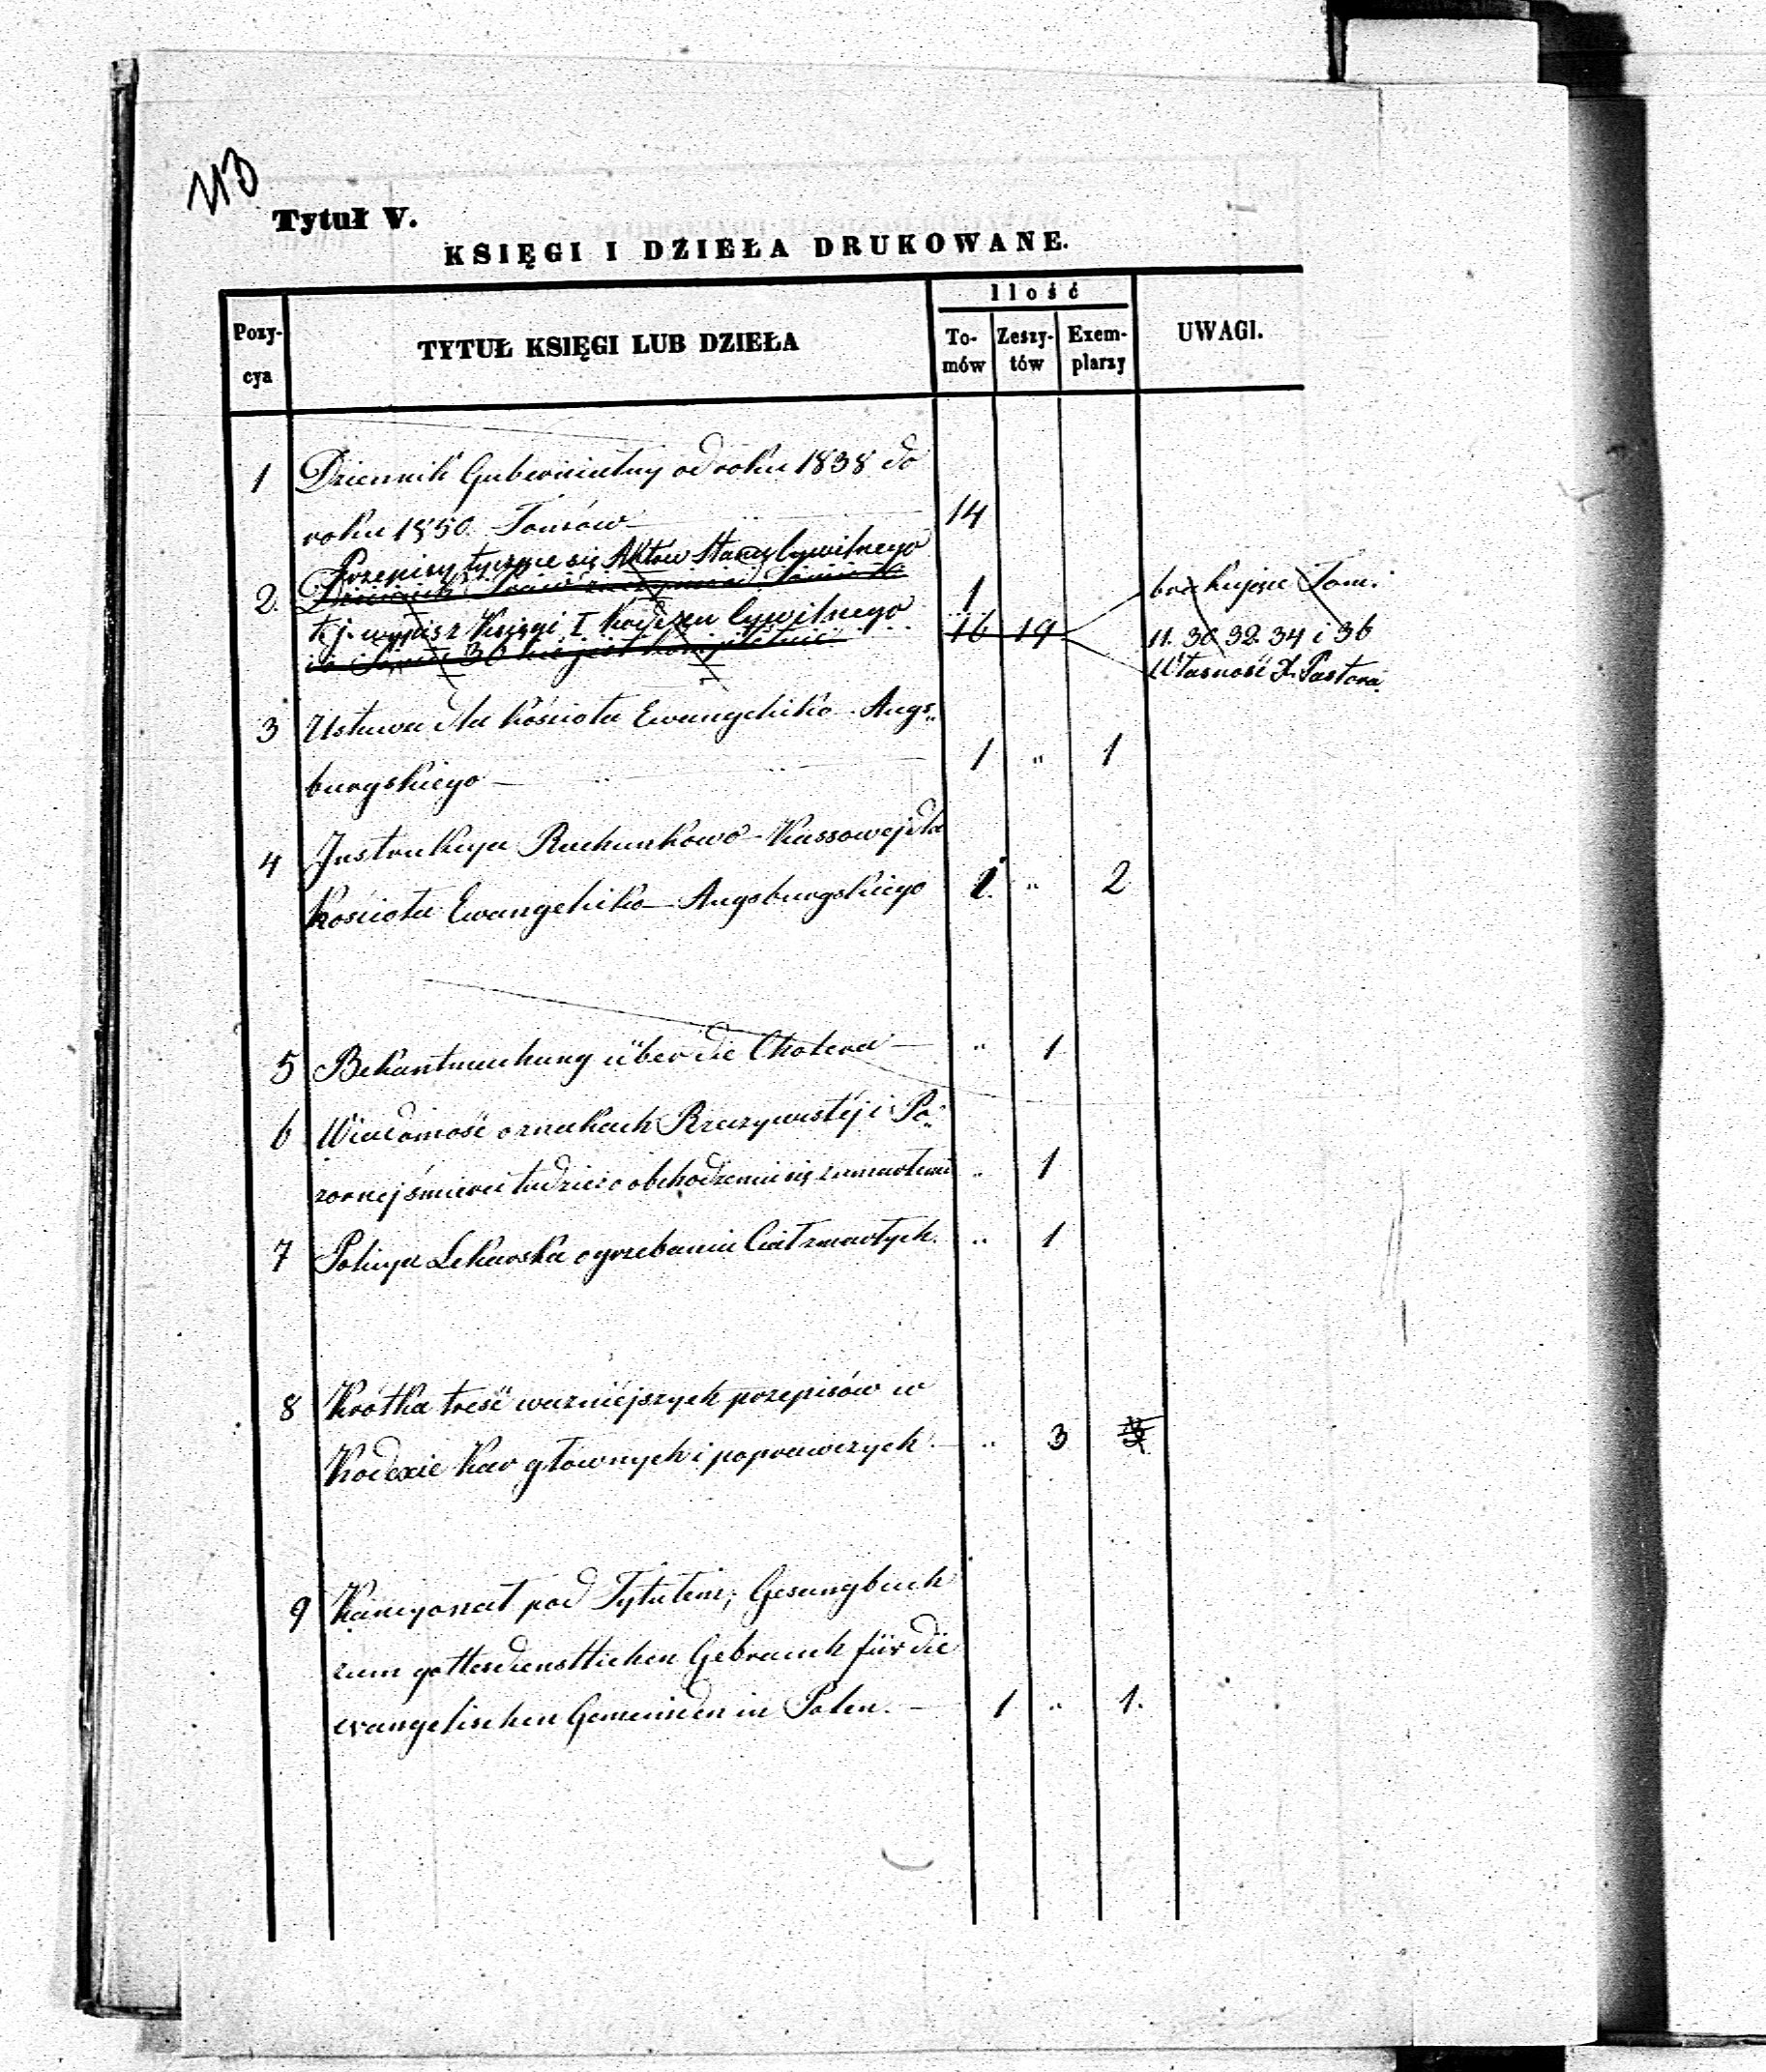 Tytuł V.
KSIĘGI I DZIEŁA DRUKOWANE.
Pozy-
cya
TYTUŁ KSIĘGI LUB DZIEŁA
Ilość
To-
mów
Zeszy-
tów
Exem-
plarzy
UWAGI.
1 Dziennik Gubernialny od roku 1838 do
roku 1850. Tomów 14
Przepisy tyczące się Aktów Stanu Cywilnego
2. Dziennik Praw 1
brakujące Tom.
t. j. wypis z Księgi I Kodexu Cywilnego
16 19 11. 30 32 34 i 36
30 nie jest kompletnie
Własność X. Pastora.
3 Ustawa dla Kościoła Ewangelicko-Augs„
burgskiego 1 „ 1
4 Instrukcya Rachunkowo-Kassowej dla
Kościoła Ewangelicko-Augsburgskiego 1. „ 2
5 Bekantmachung über die Cholera — „ 1
6 Wiadomość o znakach Rzeczywistéj i Po„
zornej śmierci tudzież o obchodzeniu się z umarłemi „ 1
7 Policya Lekarska o grzebaniu Ciał zmarłych. „ 1
8 Krótka treść ważniéjszych przepisów w
Kodexie Kar głównych i poprawczych. — „ 3 3
9 Kancyonał pod Tytułem; Gesangbuch
zum gottesdienstlichen Gebrauch für die
evangelischen Gemeinden in Polen. — 1 „ 1.